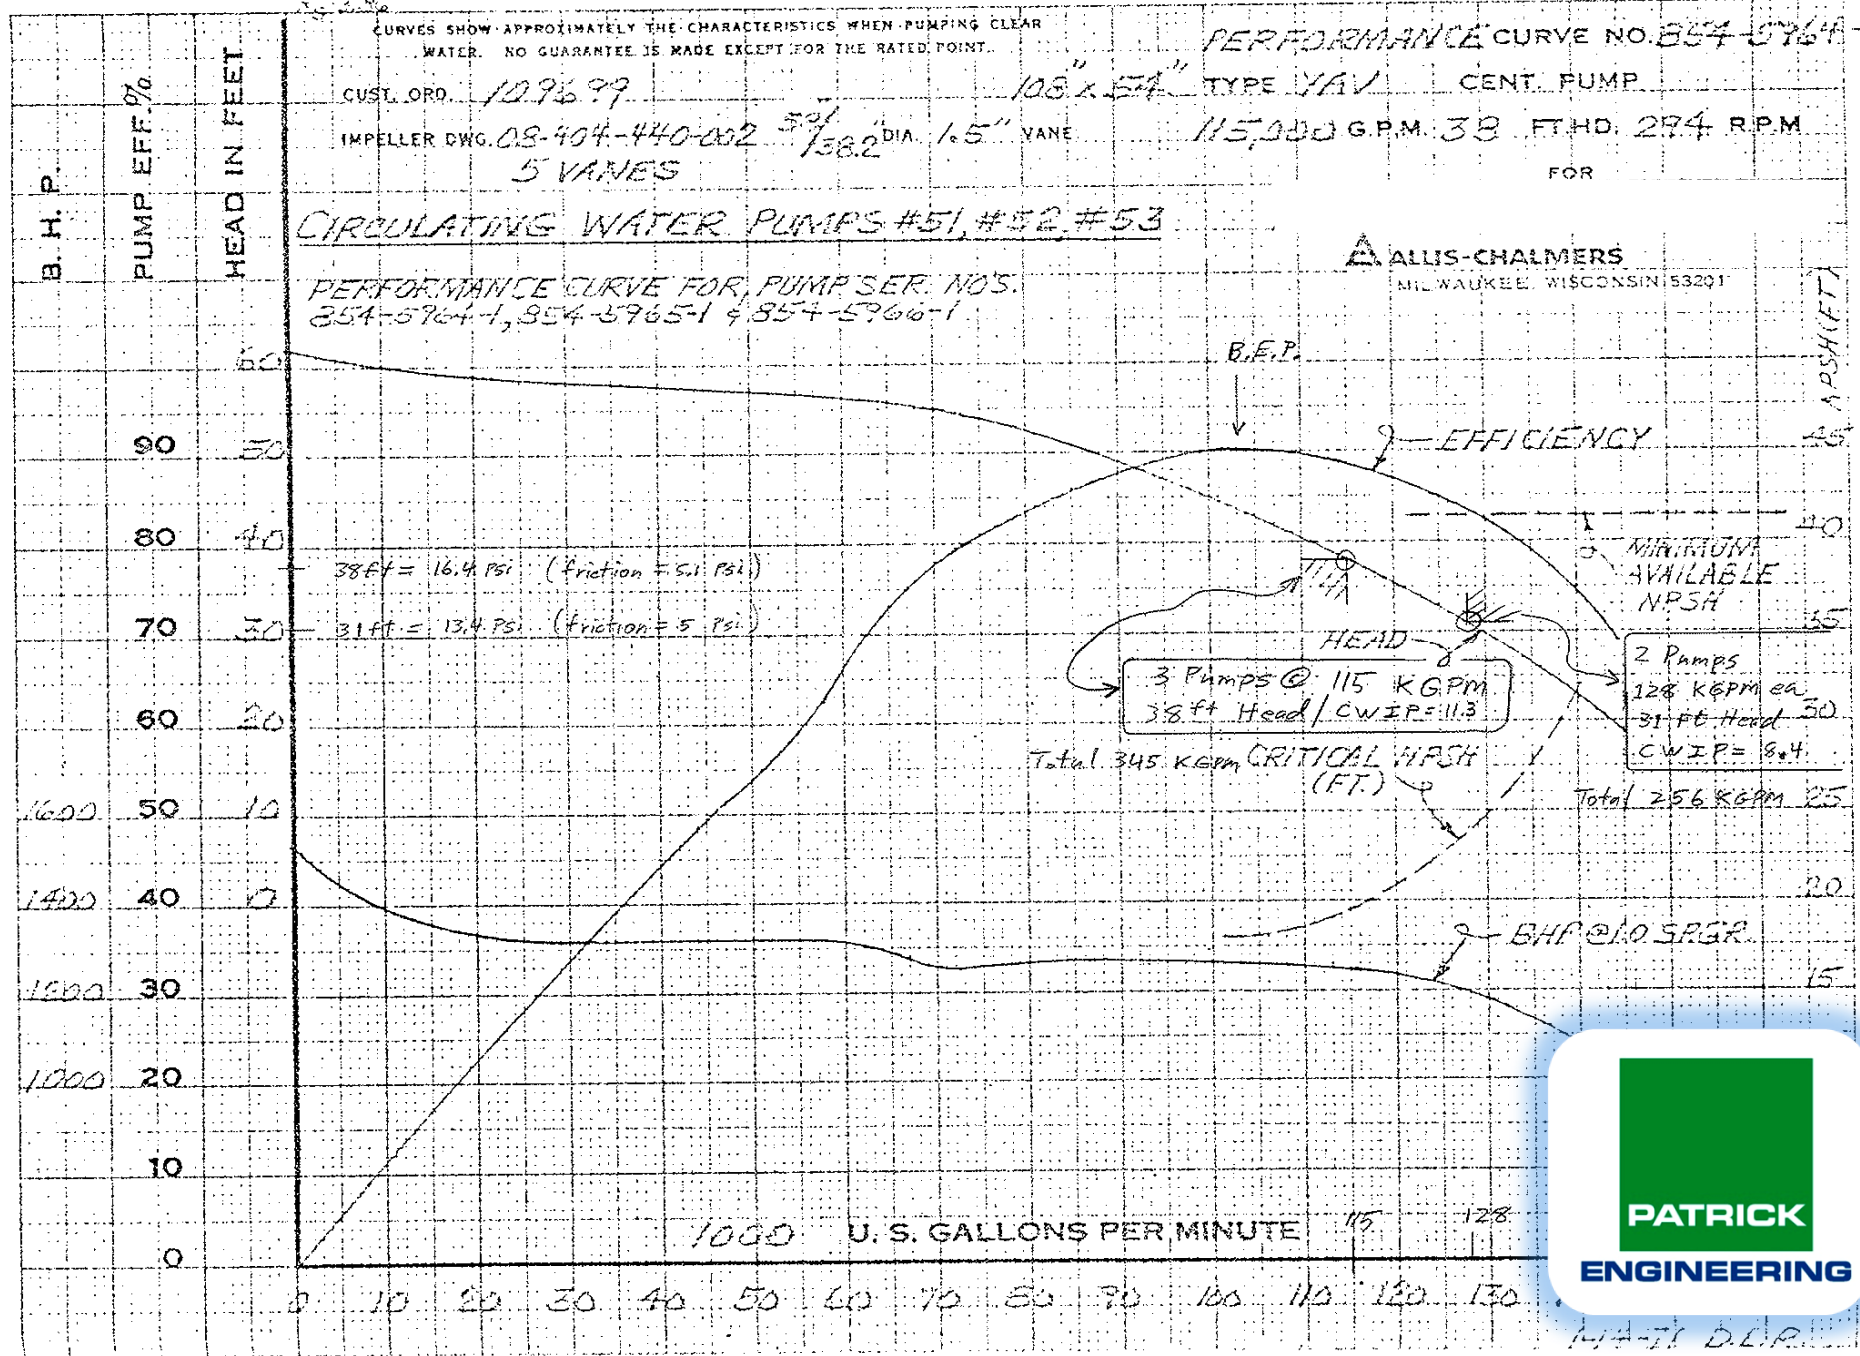 CURVES SHOW APPROXIMATELY THE CHARACTERISTICS WHEN PUMPING CLEAR
WATER. NO GUARANTEE IS MADE EXCEPT FOR THE RATED POINT.
PERFORMANCE CURVE NO. 854-5964-
CUST. ORD. 109699
108" x 54" TYPE YAV CENT. PUMP
IMPELLER DWG. 08-404-440-002 DIA 1.5" VANE
5 VANES
115,000 G.P.M. 38 FT. HD. 294 R.P.M
FOR
B. H. P.
PUMP EFF. %
HEAD IN FEET
CIRCULATING WATER PUMPS #51, #52, #53
ALLIS-CHALMERS
MILWAUKEE, WISCONSIN 53201
PERFORMANCE CURVE FOR PUMP SER. NO'S.
854-5964-1, 854-5965-1 & 854-5966-1
NPSH (FT)
60
B.E.P.
90 50 45
EFFICIENCY
80 40 40
MINIMUM
AVAILABLE
NPSH
38ft = 16.4 PSi (friction = 5.1 PSi)
70 30 35
31ft = 13.4 PSi (friction = 5 PSi)
HEAD
3 Pumps @ 115 KGPM
38 ft Head / CWIP = 11.3
Total 345 KGPM
2 Pumps
128 KGPM ea
31 Ft Head
CWIP = 8.4
Total 256 KGPM
60 20 30
CRITICAL NPSH
(FT.)
1600 50 10 25
1400 40 0 20
BHP @ 1.0 SP.GR.
1200 30 15
1000 20
10
0
1000 U. S. GALLONS PER MINUTE 115 128
0 10 20 30 40 50 60 70 80 90 100 110 120 130
PATRICK
ENGINEERING